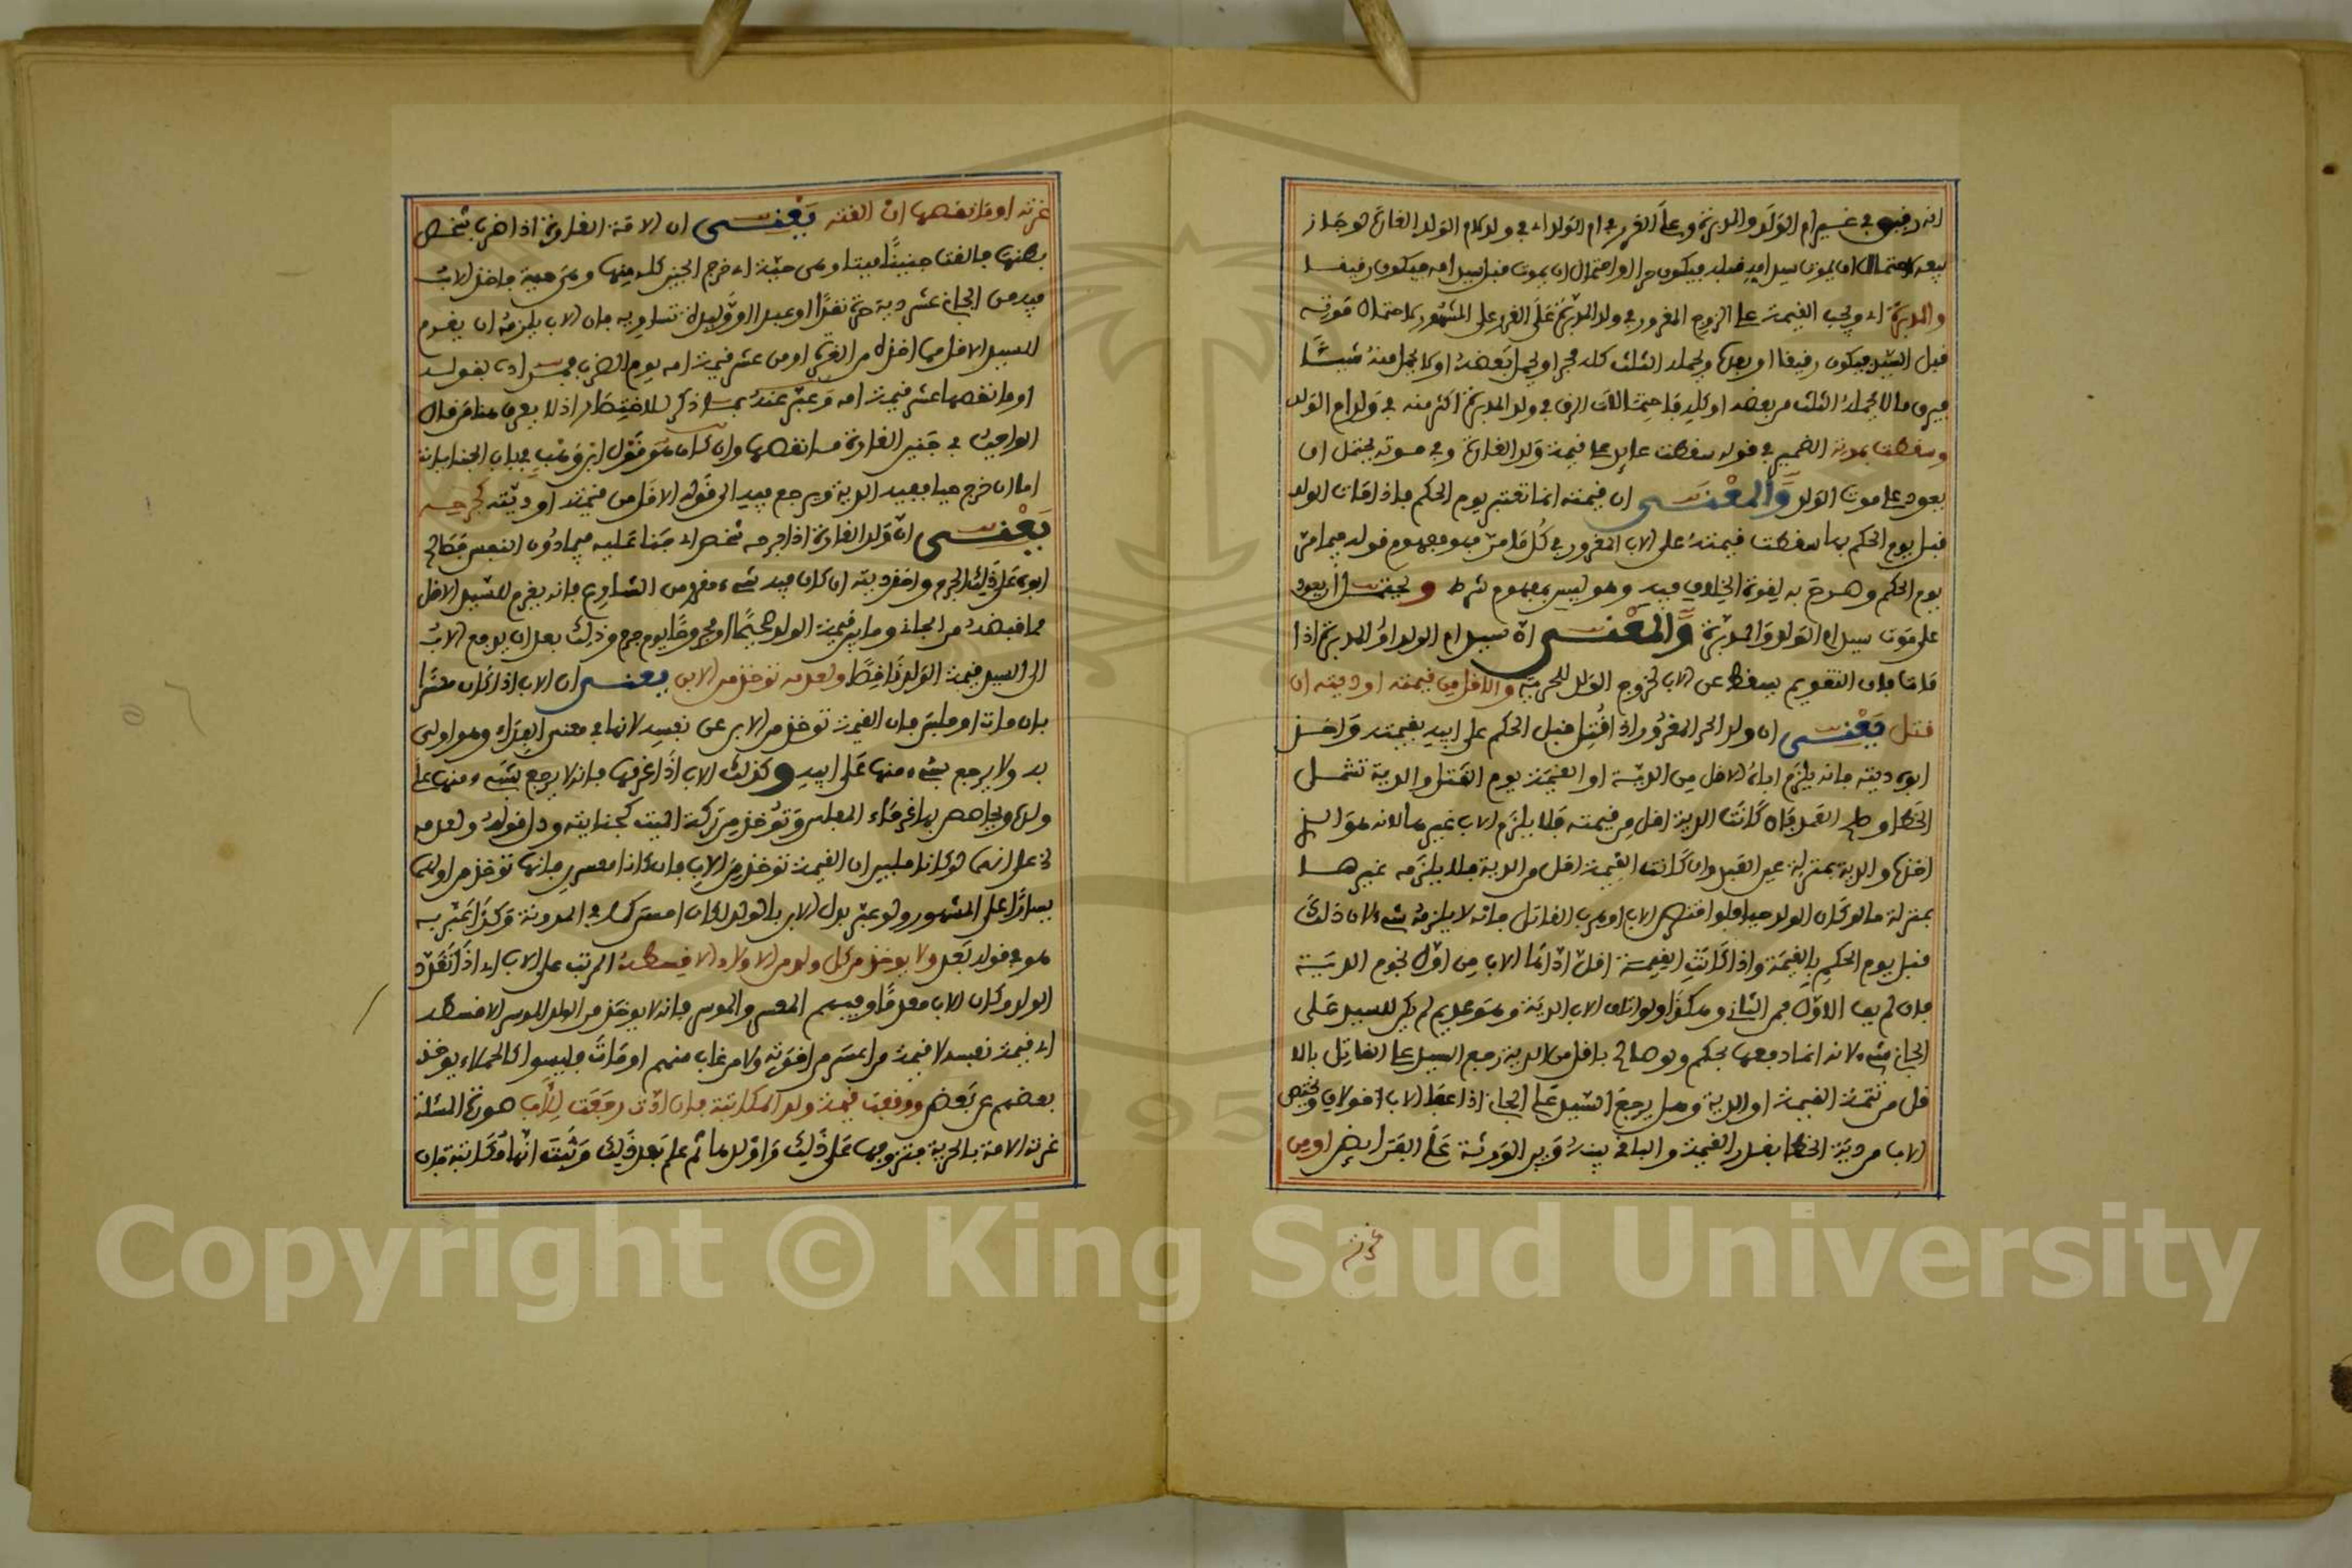 انه رقيق في غير ام الولد والمدبرة وعلى الغرر في ام الولد اي في ولد ام الولد الغارة لو جاز
بيعه لاحتمال ان يموت سيد امه قبله فيكون حرا او احتمال ان يموت قبل سيد امه فيكون رقيقا
والمدبرة اي وتجب القيمة على الزوج المغرور في ولد المدبرة على الغرر على المشهور لاحتمال موته
قبل السيد فيكون رقيقا او بعده ويحمله الثلث كله فحر او يحمل بعضه او لا يحمل منه شيئا
فيرق ما لا يحمله الثلث من بعضه او كله فاحتمالات الرق في ولد المدبرة اكثر منه في ولد ام الولد
وسقطت بموته الضمير في قوله سقطت عايد على قيمة ولد الغارة وفي موته يحتمل ان
يعود على موت الولد والمعنى ان قيمته انما تعتبر يوم الحكم فاذا مات الولد
قبل يوم الحكم بها سقطت قيمته على الاب المغرور في كل ما مر فهو مفهوم قوله فيما مر
يوم الحكم وصرح به لقوة الخلاف فيه وهو ليس بمفهوم شرط ويحتمل ان يعود
على موت سيد ام الولد والمدبرة والمعنى ان سيد ام الولد او المدبرة اذا
مات فان التقويم يسقط عن الاب لخروج الولد للحرية والاقل من قيمته او ديته ان
قتل يعنى ان ولد الحر المغرور اذا قتل قبل الحكم على ابيه بقيمته واخذ
ابوه ديته فانه يلزم اباه الاقل من الدية او القيمة يوم القتل والدية تشمل
الخطا وصلح العمد فان كانت الدية اقل من قيمته فلا يلزم الاب غيرها لانه هو الذي
اخذها والدية بمنزلة عين العبد وان كانت القيمة اقل من الدية فلا يلزمه غيرها
بمنزلة ما لو كان الولد حيا فلو اقتص الاب او هرب القاتل فانه لا يلزمه شيء لان ذلك
قبل يوم الحكم بالقيمة واذا كانت القيمة اقل اداها الاب من اول نجوم الدية
فان لم يف الاول فمن الثاني وهكذا ولو اتلف الاب الدية وهو عديم لم يكن للسيد على
الجاني شيء لانه انما دفعها بحكم ولو صالح باقل من الدية رجع السيد على القاتل بالا
قل من تتمة القيمة او الدية وهل يرجع السيد على الجاني اذا عفا الاب قولان ويختص
الاب من دية الخطا بقدر القيمة والباقي بينه وبين الورثة على الفرائض او من
غرته
غرته او ما نقصها ان القته يعنى ان الامة الغارة اذا ضرب شخص
بطنها فالقت جنينا ميتا وهي حية اي خرج الجنين كله منها وهي حية فاخذ الاب
فيه من الجاني عشر دية حرة نقدا او عبدا او وليدة تساويه فان الاب يلزمه ان يغرم
للسيد الاقل مما اخذه من الغرة او من عشر قيمة امه يوم الضرب فمراده بقوله
او ما نقصها عشر قيمة امه وعبر عنه بما ذكر للاختصار اذ لا يعرف هنا من قال
الواجب في جنين الغارة ما نقصها وان كان هو قول ابن وهب في باب الجنايات
اما ان خرج حيا ففيه الدية ويرجع فيه الى قوله الاقل من قيمته او ديته كجرحه
يعنى ان ولد الغارة اذا جرحه شخص اي جنا عليه فيما دون النفس فصالح
ابوه على ذلك الجرح واخذ ديته ان كان فيه شيء مقرر من الشارع فانه يغرم للسيد الاقل
مما قبضه من الجاني وما بين قيمة الولد صحيحا او مجروحا يوم جرح وذلك بعد ان يدفع الاب
الى السيد قيمة الولد ناقصا ولعدمه تؤخذ من الابن يعنى ان الاب اذا كان معسرا
بان مات او فلس فان القيمة تؤخذ من الابن عن نفسه لانها في معنى الفداء وهو اولى
به ولا يرجع بشيء منها على ابيه وكذلك الاب اذا غرمها فانه لا يرجع بشيء منها على
ولده ويحاصص بها غرماء المفلس وتؤخذ من تركة الميت كجنايته ودل قوله ولعدمه
خ على انهما لو كانا مليين ان القيمة تؤخذ من الاب فان كانا معسرين فانها تؤخذ من اولهما
يسارا على المشهور ولو عبر بدل الابن بالولد لكان احسن كما في المدونة وكذا عبر به
هو في قوله بعد ولا يؤخذ من كل ولد من الاولاد الا قسطه المرتب على الاب اي اذا تعدد
الولد وكان الاب معدما وفيهم المعسر والموسر فانه لا يؤخذ من الولد الموسر الا قسطه
اي قيمة نفسه لا قيمة من اعسر من اخوته ولا من غاب منهم او مات فليسوا كالحملاء يؤخذ
بعضهم عن بعض ووقفت قيمة ولد المكاتبة فان ادت رجعت للاب صورة المسئلة
غرته الامة بالحرية فتزوجها على ذلك واولدها ثم علم بعد ذلك وثبت انها مكاتبة فان
Copyright © King Saud University
1957